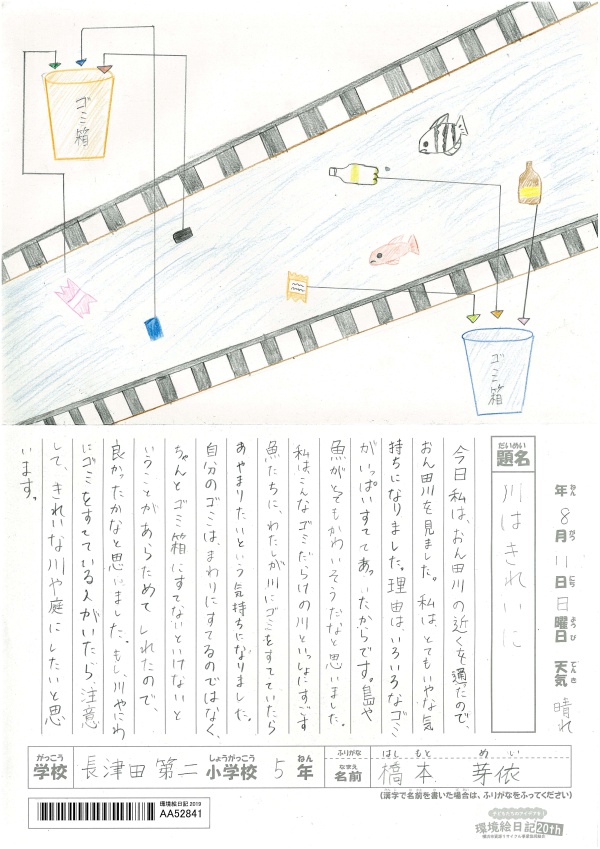 ゴミ箱
ゴミ箱
年 8月 11日 日曜日 天気 晴れ
ねん がつ にち ようび てんき
だいめい
題名
川はきれいに
今日私は、おん田川の近くを通ったので、
おん田川を見ました。私は、とてもいやな気
持ちになりました。理由はいろいろなゴミ
がいっぱいすててあったからです。鳥や
魚がとてもかわいそうだなと思いました。
私はこんなゴミだらけの川といっしょにすごす
魚たちに、わたしが川にゴミをすてていたら
あやまりたいという気持ちになりました。
自分のゴミは、まわりにすてるのではなく、
ちゃんとゴミ箱にすてないといけないと
いうことがあらためてしれたので、
良かったかなと思いました。もし川やにわ
にゴミをすてている人がいたら、注意
して、きれいな川や庭にしたいと思
います。
がっこう しょうがっこう ねん
学校 長津田第二 小学校 5 年
ふりがな はし もと め い
なまえ
名前 橋本 芽依
(漢字で名前を書いた場合は、ふりがなをふってください)
環境絵日記 2019
AA52841
環境絵日記 20th